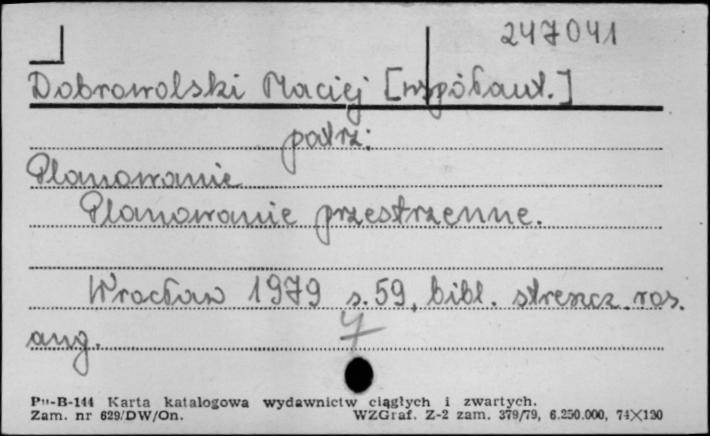 247041
Dobrowolski Maciej [współaut.]
patrz:
Planowanie
Planowanie przestrzenne.
Wrocław 1979 s. 59, bibl. streszcz. ros.
ang.
Pu-B-144 Karta katalogowa wydawnictw ciągłych i zwartych.
Zam. nr 629/DW/On. WZGraf. Z-2 zam. 379/79, 6.250.000, 74×120